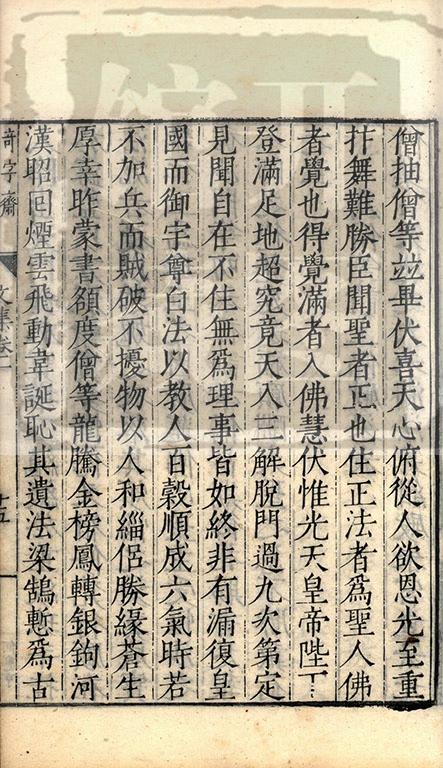 僧抽僧等竝畢伏喜天心俯從人欲恩光至重
抃舞難勝臣聞聖者正也住正法者爲聖人佛
者覺也得覺滿者入佛慧伏惟光天皇帝陛下
登滿足地超究竟天入三解脫門過九次第定
見聞自在不住無爲理事皆如終非有漏復皇
國而御宇尊白法以教人百穀順成六氣時若
不加兵而賊破不擾物以人和緇侶勝緣蒼生
厚幸昨蒙書額度僧等龍騰金榜鳳轉銀鉤河
漢昭囘煙雲飛動韋誕恥其遺法梁鵠慙爲古
奇字齋
文集卷一
十五